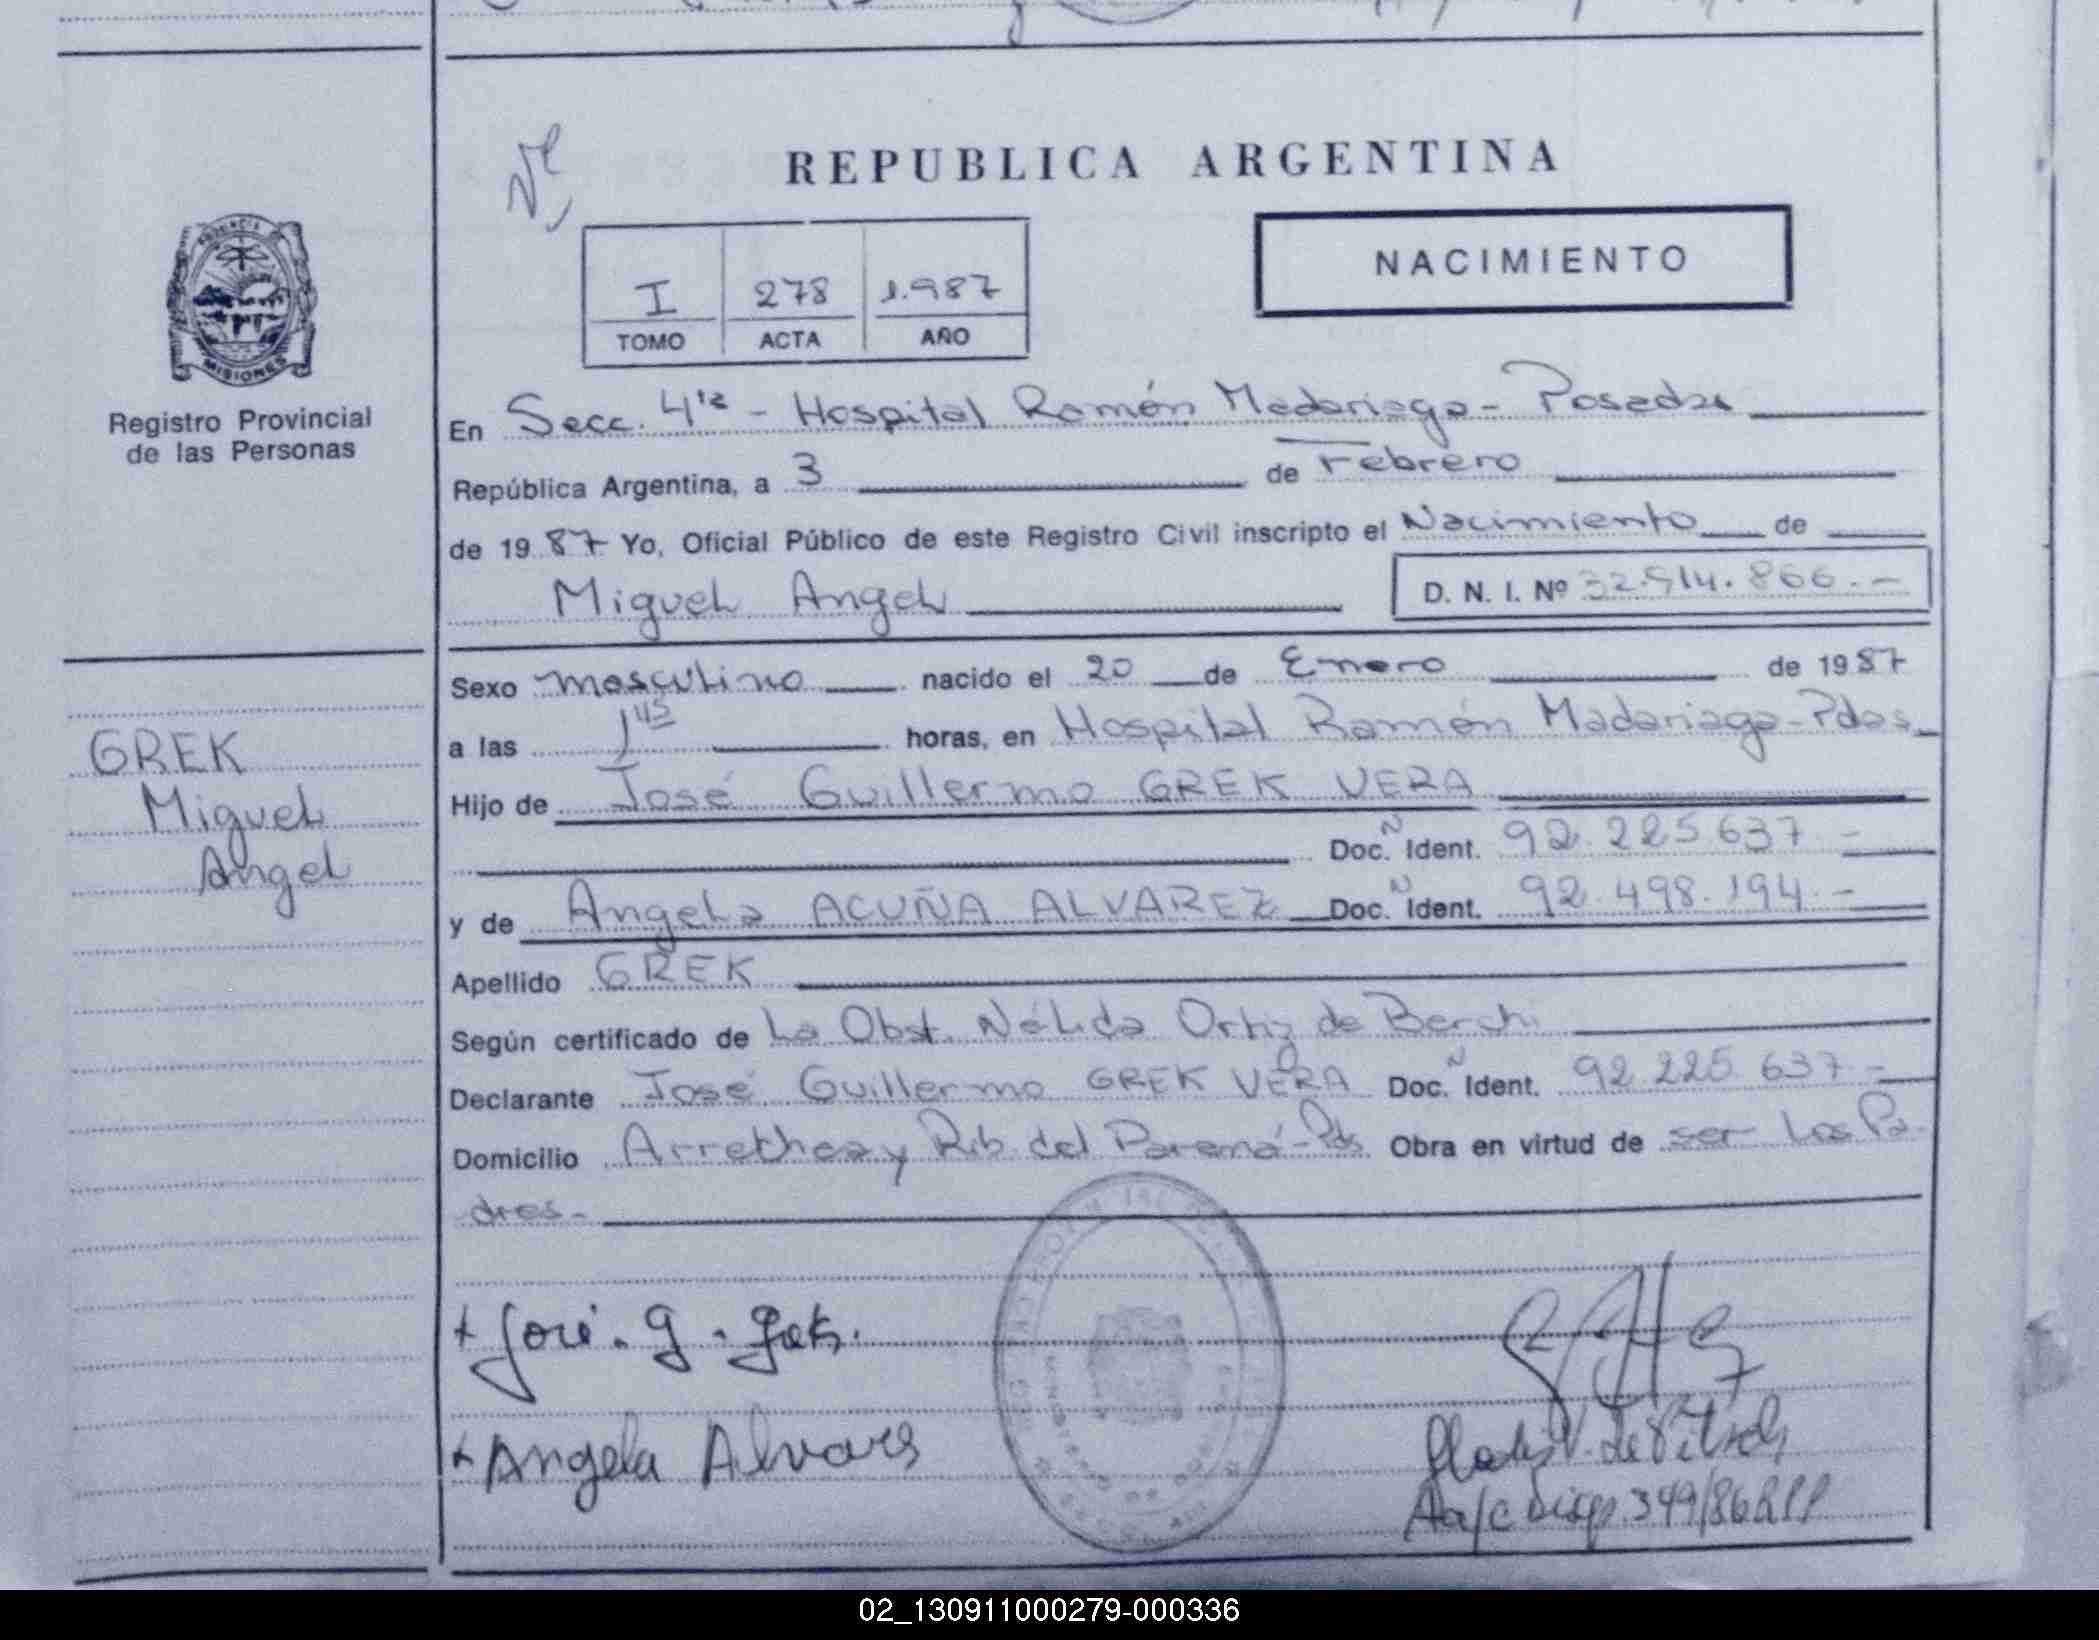 REPUBLICA ARGENTINA
I 278 1.987
TOMO ACTA AÑO
NACIMIENTO
MISIONES
Registro Provincial
de las Personas
GREK
Miguel
Angel
En Secc. 4ta - Hospital Ramón Madariaga - Posadas
República Argentina, a 3 de Febrero
de 1987 Yo, Oficial Público de este Registro Civil inscripto el Nacimiento de
Miguel Angel D. N. I. Nº 32.914.866.-
Sexo masculino nacido el 20 de Enero de 1987
a las 1 45 horas, en Hospital Ramón Madariaga - Pdas
Hijo de José Guillermo GREK VERA
Doc. Ident. 92.225.637 -
y de Angela ACUÑA ALVAREZ Doc. Ident. 92.498.194.-
Apellido GREK
Según certificado de La Obst. Nélida Ortiz de Berchi
Declarante José Guillermo GREK VERA Doc. Ident. 92.225.637 -
Domicilio Arrechea y Rib. del Paraná - Pds Obra en virtud de ser Los Pa
dres -
José. G. Grek.
Angela Alvares
349/86
02_130911000279-000336